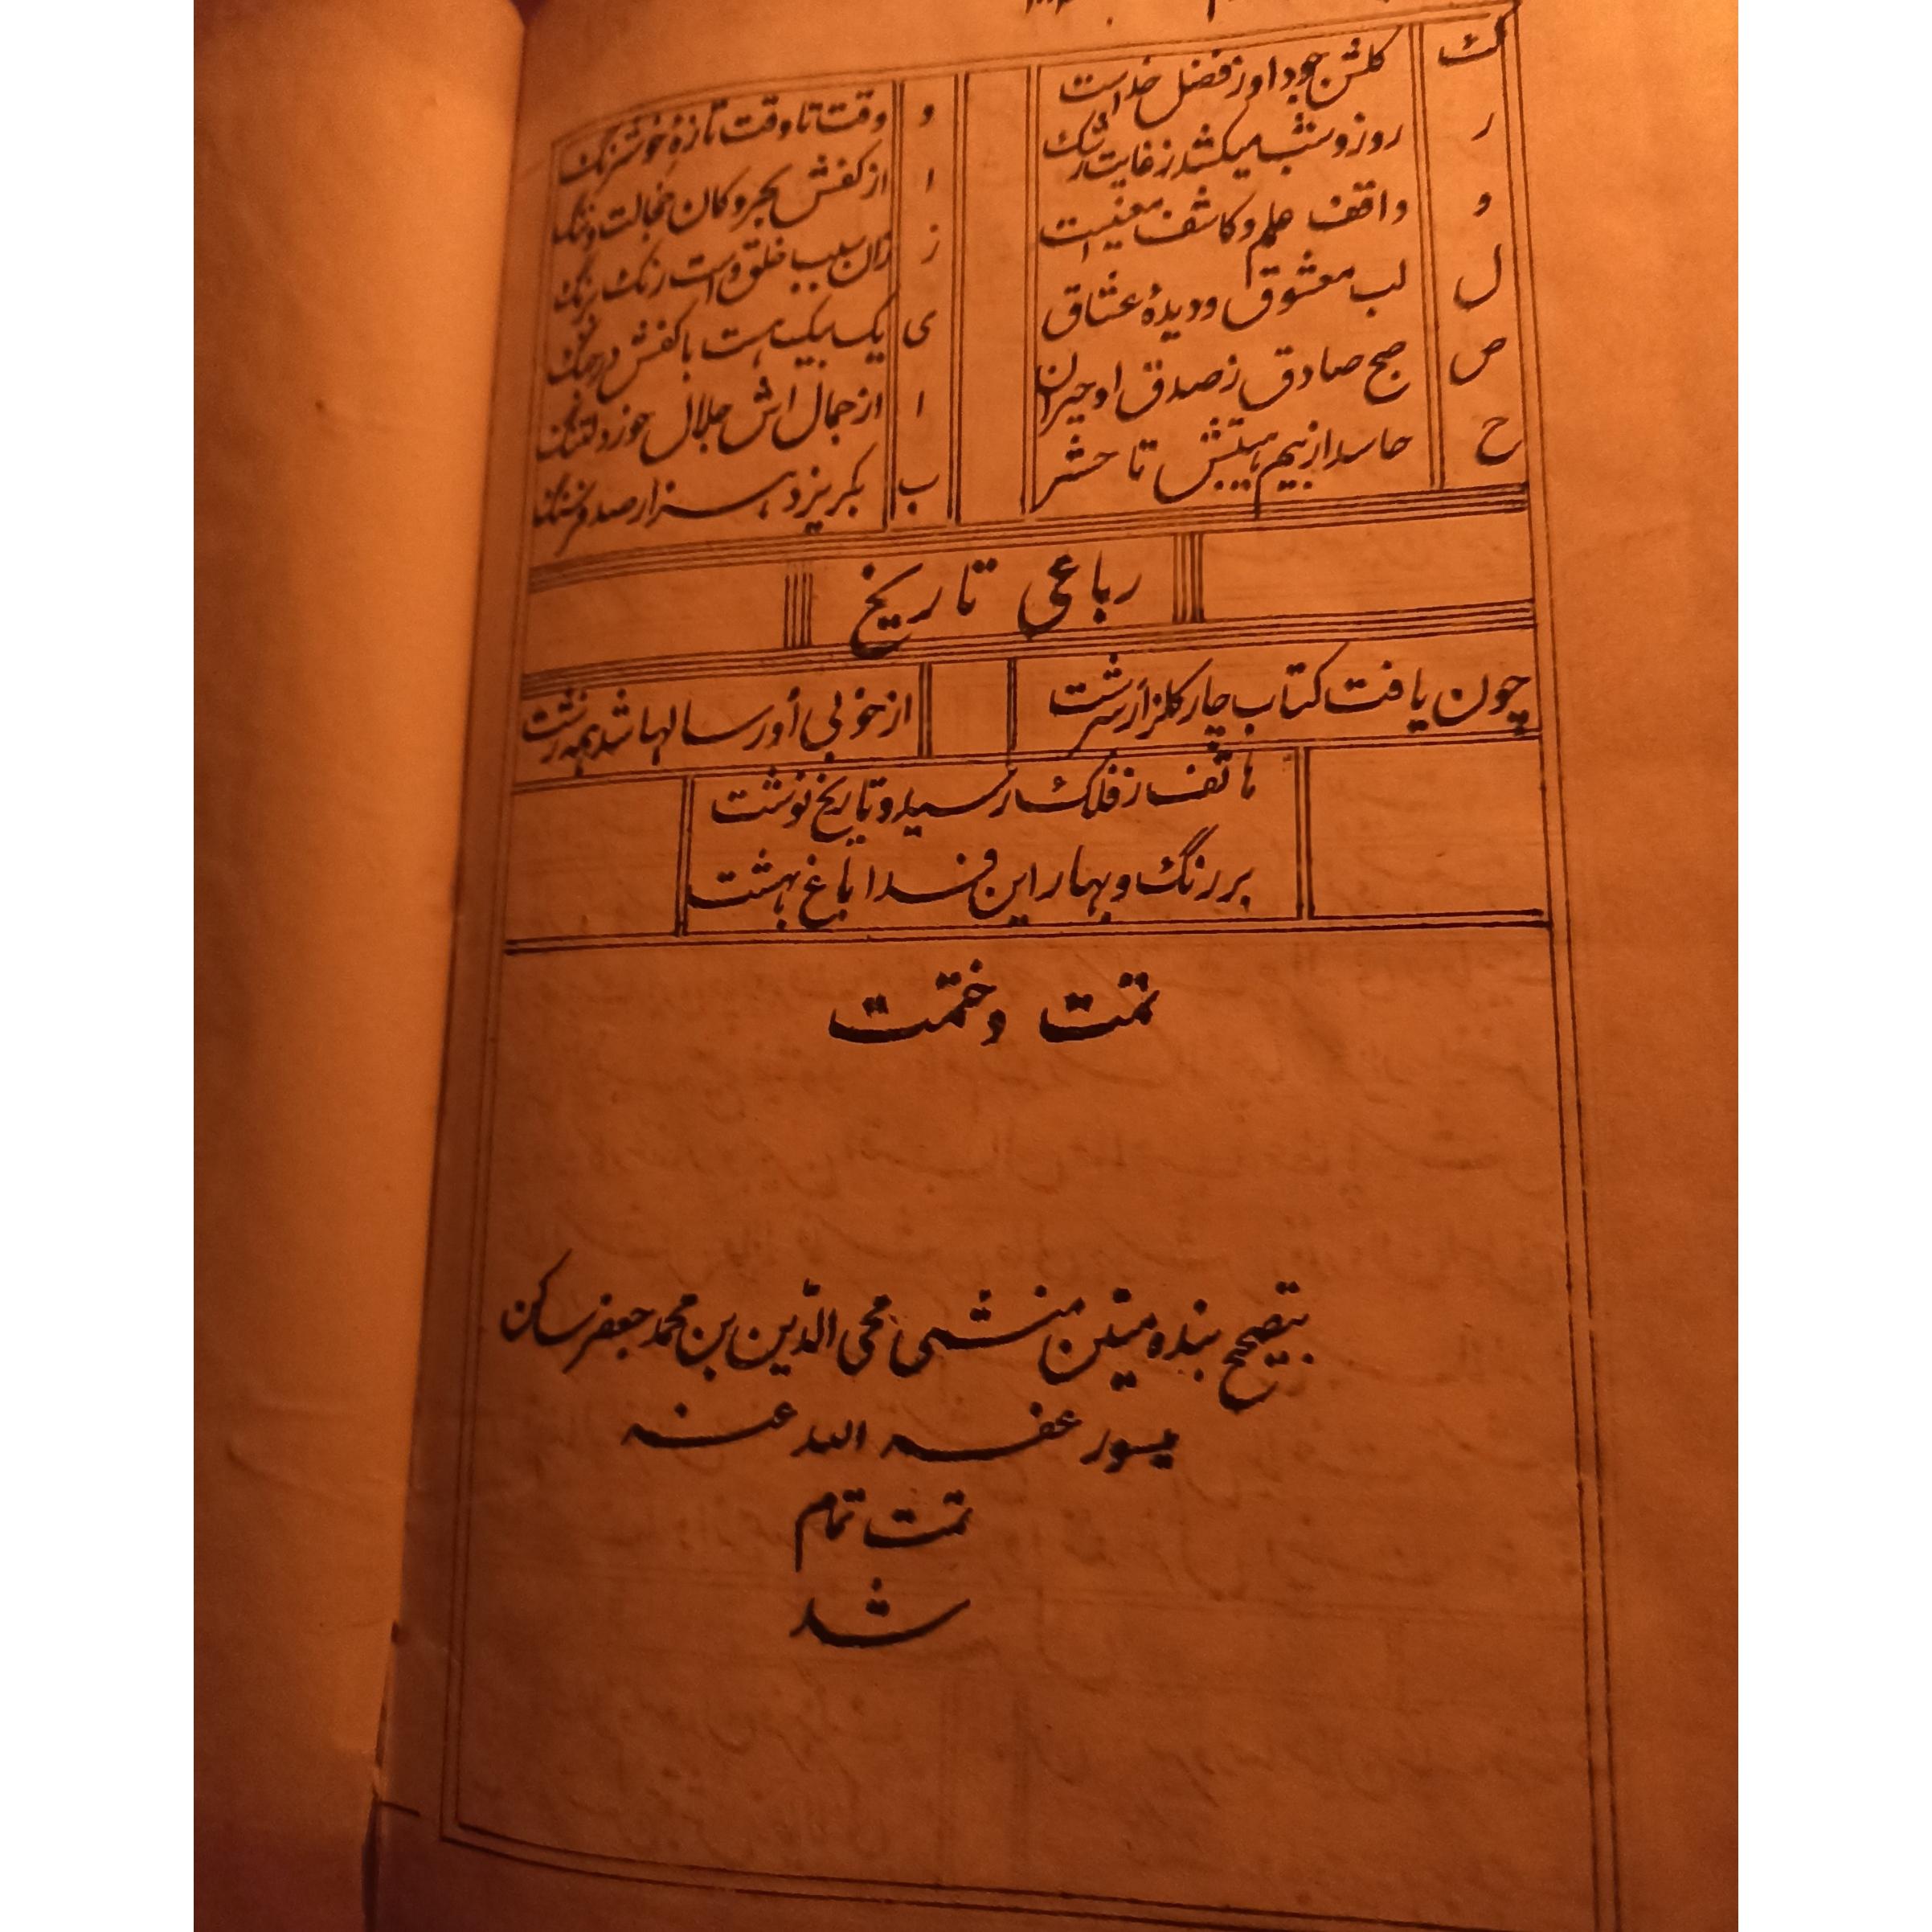 ک گلشن جود او ز فضل خداست و وقت تا وقت تازۂ خوشرنگ
ر روز و شب میکشد ز غایت رشک ا از کفش بحر و کان خجالت و ننگ
و واقف علم و کاشف معنیست ز زان سبب خلق راست رنگ برنگ
ل لب معشوق و دیدۂ عشاق ی یک بیک هست با کفش در جنگ
ص صبح صادق ز صدق او حیران ا از جمال اش جلال
ح حاسد از بیم هیبتش تا حشر ب بگریزد هزار صد فرسنگ
رباعی تاریخ
چون یافت کتاب چار گلزار سرشت از خوبی أو رسالها شد همه زشت
هاتف ز فلک رسید و تاریخ نوشت
بر رنگ و بهار این فدا باغ بهشت
تمت وختمت
بتصحیح بنده متین منشی محی الدّین بن محمد جعفر ساکن
میسور عفه الله عنه
تمت تمام
شد